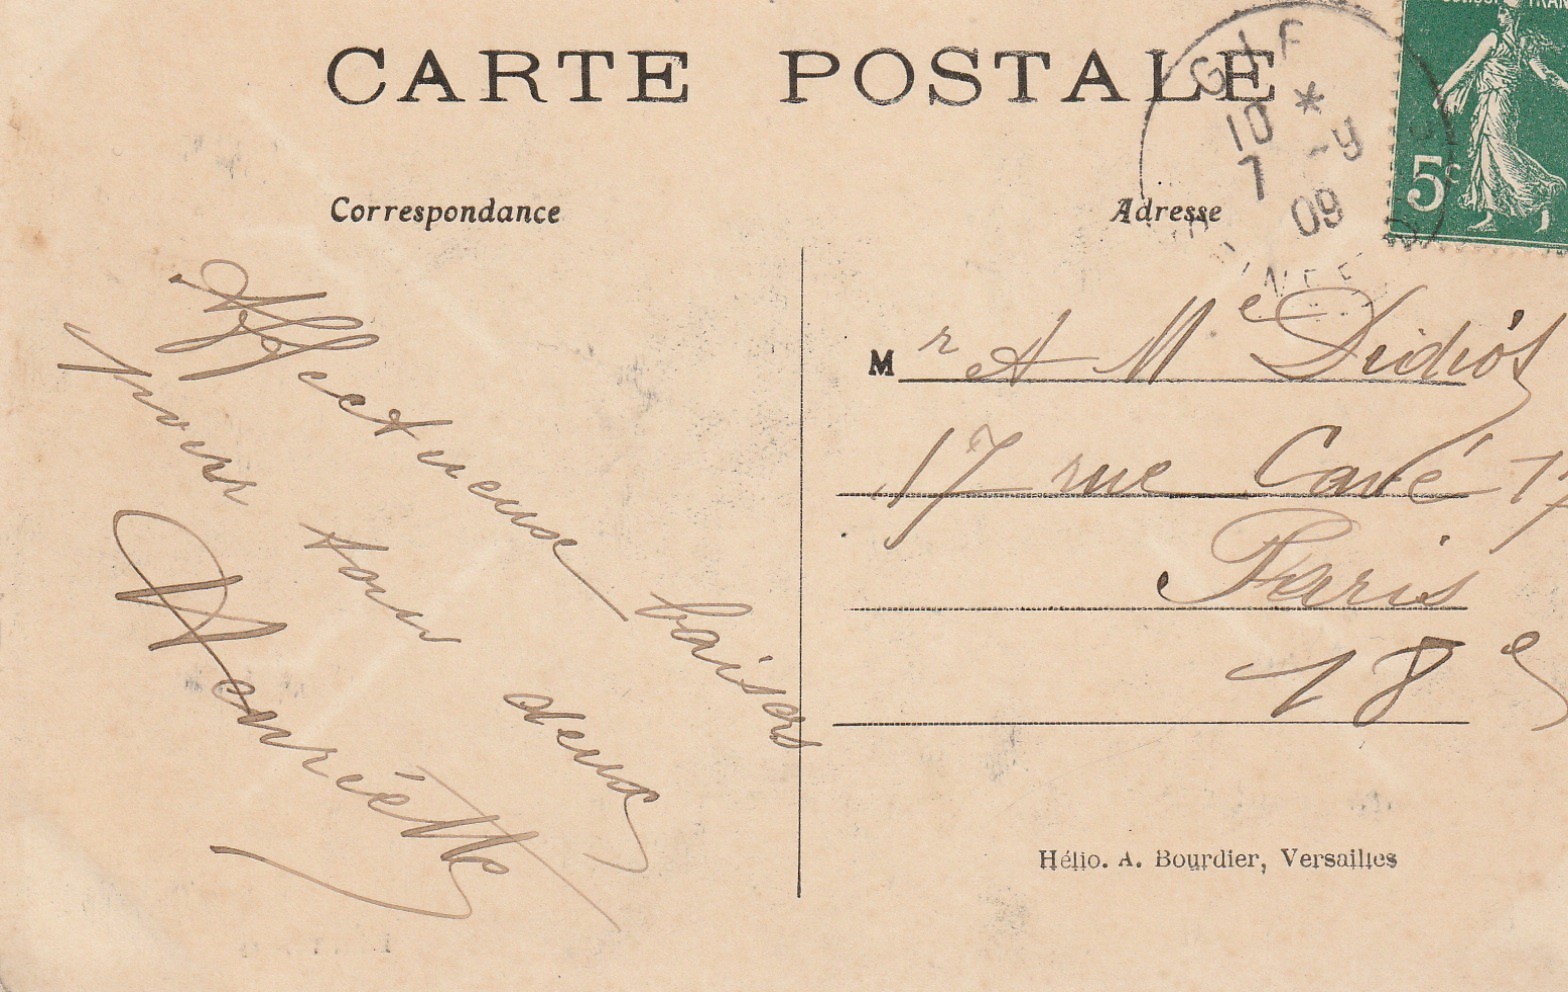 CARTE POSTALE
GIF
10 *
7 -9
09
5c
Correspondance
Adresse
Affectueux baisers
pour tous deux
Henriette
Mr et Me
17 rue Cavé 17
Paris
18e
Hélio. A. Bourdier, Versailles